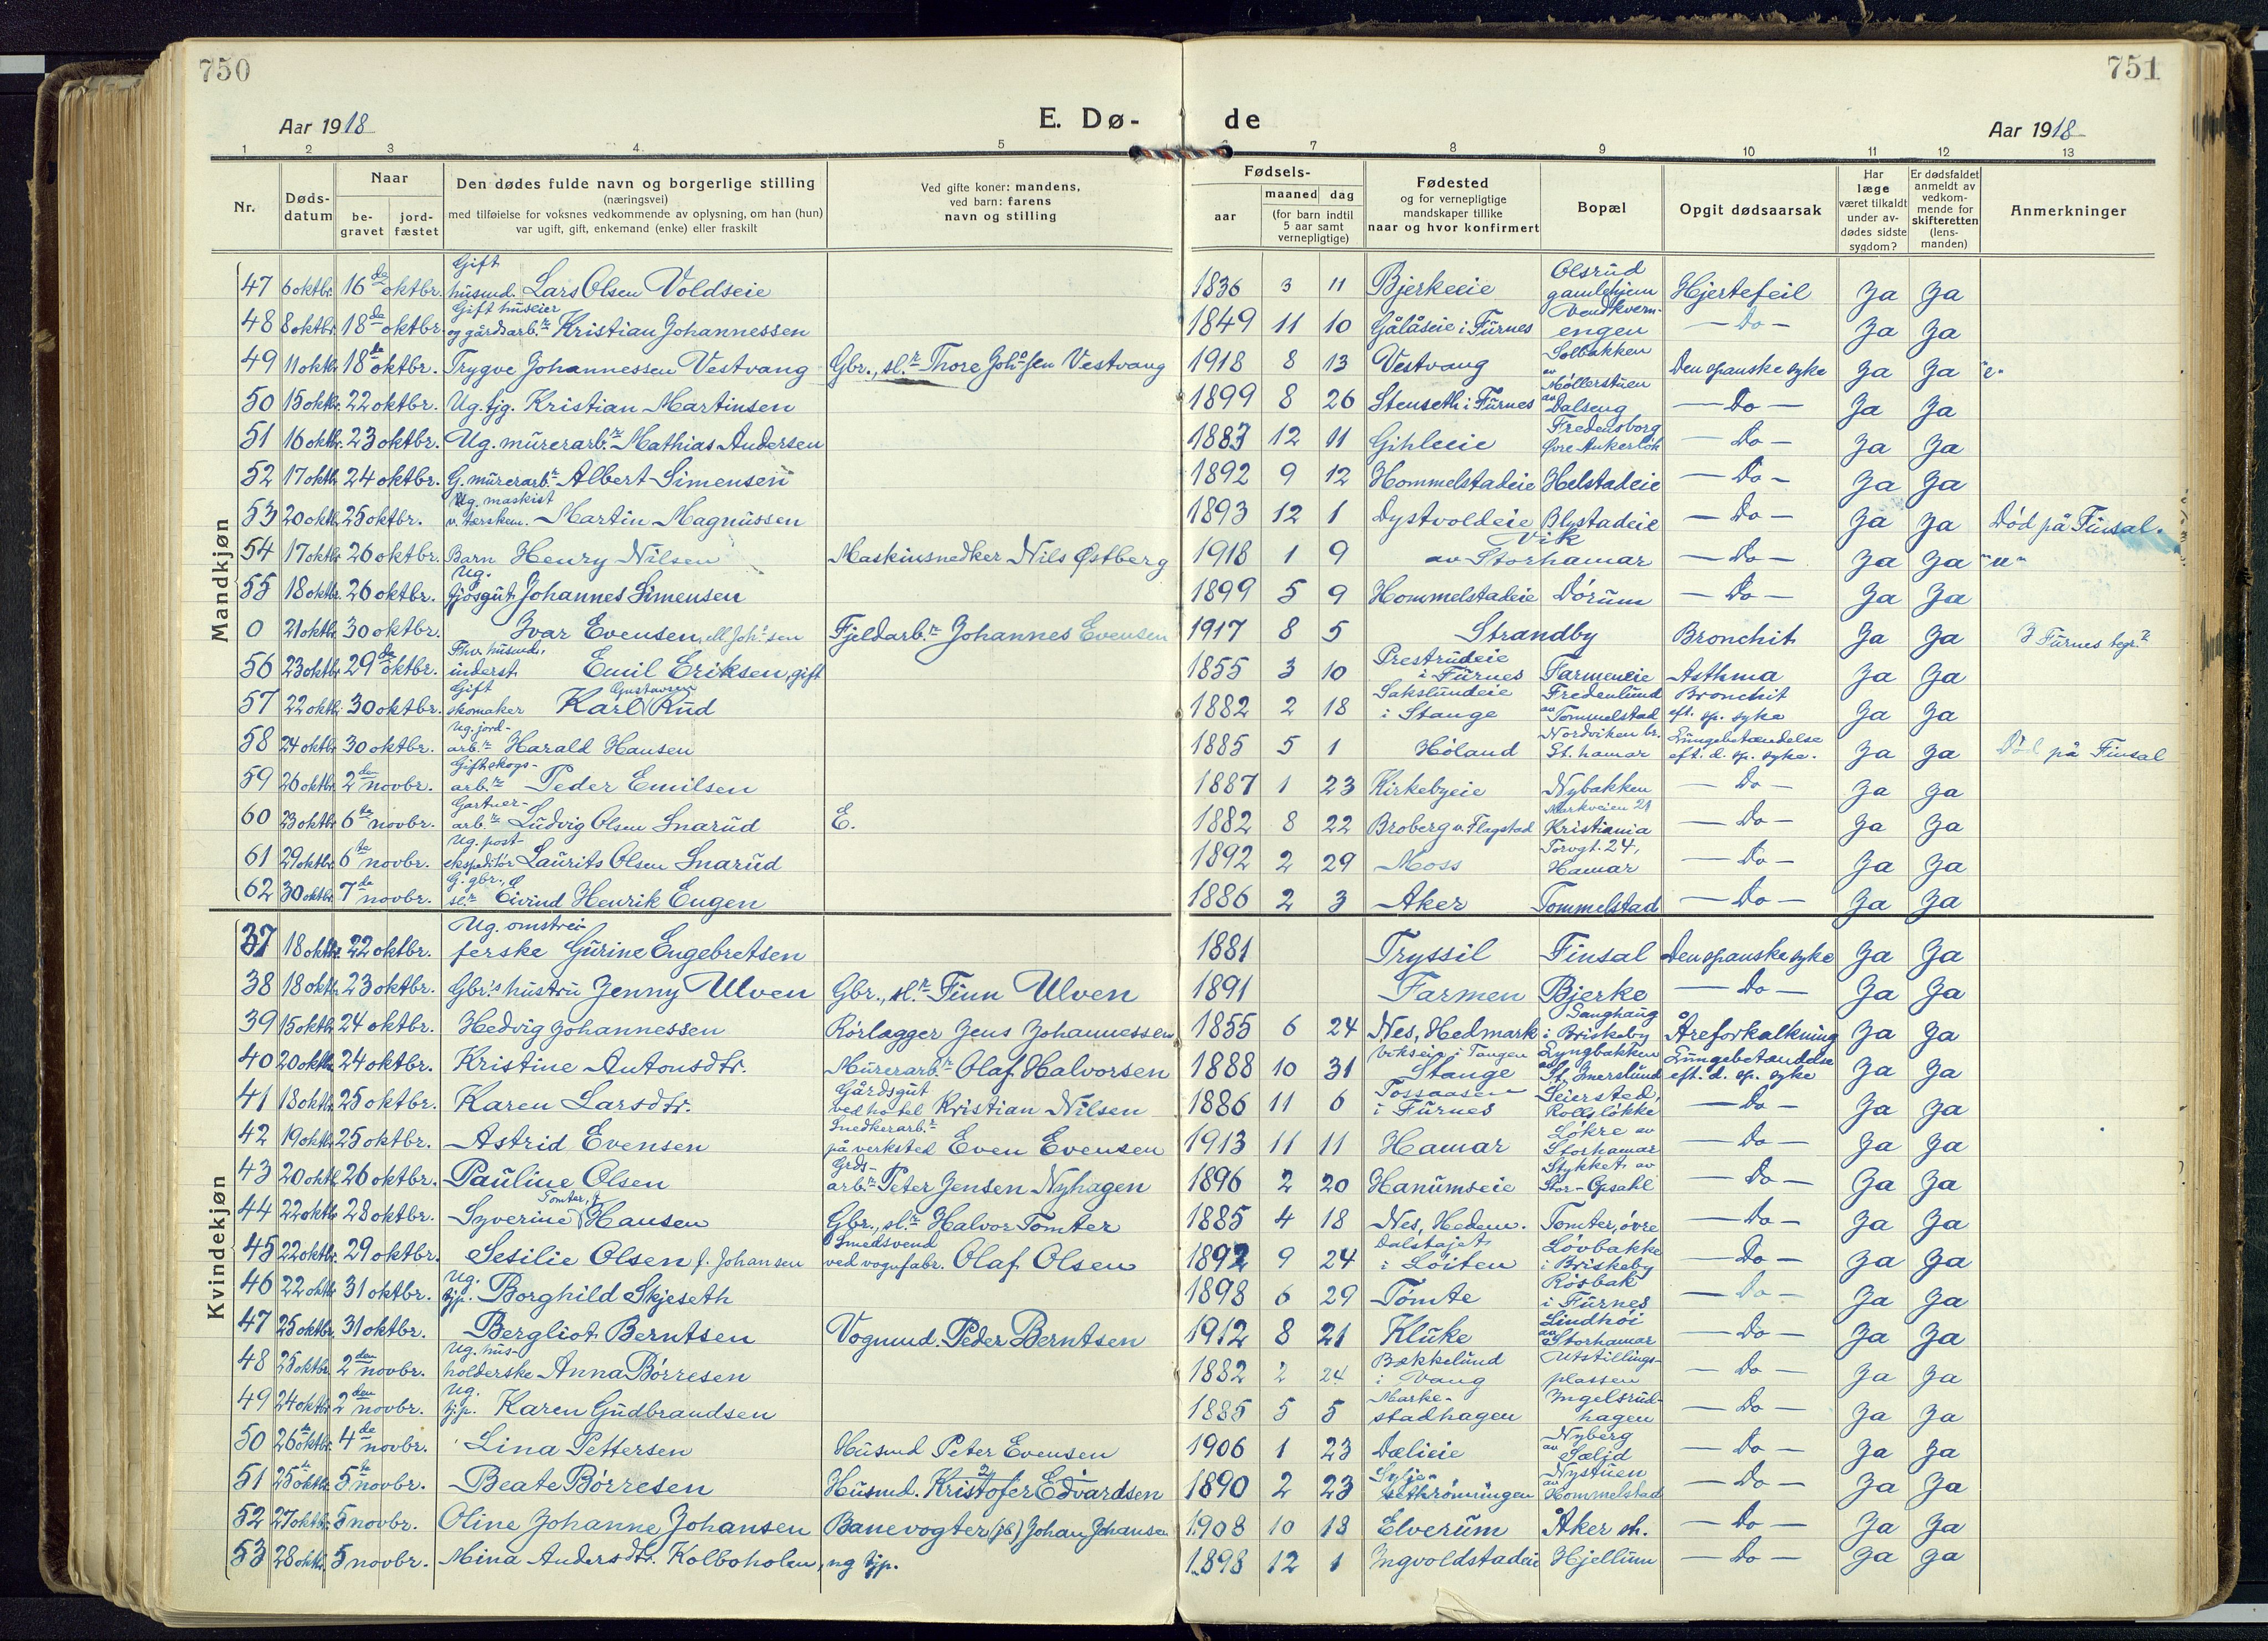 750
751
Aar 1918
E. Dø-
de
Aar 1918
1 2 3 4 5 6 7 8 9 10 11 12 13
Nr.
Døds-datum
Naar
be-gravet
jord-fæstet
Den dødes fulde navn og borgerlige stilling
(næringsvei)
med tilføielse for voksnes vedkommende av oplysning, om han (hun)
var ugift, gift, enkemand (enke) eller fraskilt
Ved gifte koner: mandens,
ved barn: farens
navn og stilling
Fødsels-
aar
maaned dag
(for barn indtil 5 aar samt vernepligtige)
Fødested
og for vernepligtige
mandskaper tillike
naar og hvor konfirmert
Bopæl
Opgit dødsaarsak
Har læge været tilkaldt under av-dødes sidste sygdom?
Er dødsfaldet anmeldt av vedkom-mende for skifteretten (lens-manden)
Anmerkninger
Mandkjøn
47 6 oktbr. 16de oktbr. Gift husmd. Lars Olsen Voldseie 1836 3 11 Bjerkeeie Olsrud gamlehjem Hjertefeil Ja Ja
48 8 oktbr. 18de oktbr. Gift huseier og gårdsarb.r Kristian Johannessen 1849 11 10 Gålåseie i Furnes Vendkvern-engen — Do — Ja Ja
49 11 oktbr. 18de oktbr. Trygve Johannessen Vestvang Gbr., sl.r Thore Joh.sen Vestvang 1918 8 13 Vestvang Solbakken av Den spanske syke Ja Ja "e"
50 15 oktbr. 22 oktbr. Ug. tjg. Kristian Martinsen 1899 8 26 Stenseth i Furnes Møllerstuen av Dalseng — Do — Ja Ja
51 16 oktbr. 23 oktbr. Ug. murerarb.r Mathias Andersen 1883 12 11 Gihleeie Fredensborg Øvre Ankerløk — Do — Ja Ja
52 17 oktbr. 24 oktbr. G. murerarb.r Albert Simensen 1892 9 12 Hommelstadeie Helstadeie — Do — Ja Ja
53 20 oktbr. 25 oktbr. Ug. maskist v. tærskem. Martin Magnussen 1893 12 1 Dystvoldeie Blystadeie — Do — Ja Ja Död på Finsal.
54 17 oktbr. 26 oktbr. Barn Henry Nilsen Maskinsnedker Nils Østberg 1918 1 9 Vik av Storhamar — Do — Ja Ja "u"
55 18 oktbr. 26 oktbr. Ug. fjøsgut Johannes Simensen 1899 5 9 Hommelstadeie Dørum — Do — Ja Ja
0 21 oktbr. 30 oktbr. Ivar Evensen, ell. Joh.sen Fjeldarb.r Johannes Evensen 1917 8 5 Strandby Bronchit Ja Ja I Furnes begr.
56 23 oktbr. 29de oktbr. Fhv. husmd., inderst Emil Eriksen, gift 1855 3 10 Prestrudeie i Furnes Farmeneie Asthma Ja Ja
57 22 oktbr. 30 oktbr. Gift skomaker Karl Gustavsen Rud 1882 2 18 Sakslundeie i Stange Fredenlund av Tommelstad Bronchit eft. sp. syke Ja Ja
58 24 oktbr. 30 oktbr. Ug. jord-arb.r Harald Hansen 1885 5 1 Høland Nordviken br. St. hamar Lungebetændelse eft. d. sp. syke. Ja Ja Död på Finsal
59 26 oktbr. 2den novbr. Gift skogs-arb.r Peder Emilsen 1887 1 23 Kirkebyeie Nybakken — Do — Ja Ja
60 23 oktbr. 6te novbr. Gartner-arb.r Ludvig Olsen Snarud E. 1882 8 22 Broberg v. Flagstad Markveien 21 Kristiania — Do — Ja Ja
61 29 oktbr. 6te novbr. Ug. post-ekspeditør Laurits Olsen Snarud 1892 2 29 Moss Torvgt. 24, Hamar — Do — Ja Ja
62 30 oktbr. 7de novbr. G. gbr., sl.r Eivind Henrik Eugen 1886 2 3 Aker Tommelstad — Do — Ja Ja
Kvindekjøn
37 18 oktbr. 22 oktbr. Ug. omstrei-ferske Gurine Engebretsen 1881 Tryssil Finsal Den spanske syke Ja Ja
38 18 oktbr. 23 oktbr. Gbr.'s hustru Jenny Ulven Gbr., sl.r Finn Ulven 1891 Farmen Bjerke — Do — Ja Ja
39 15 oktbr. 24 oktbr. Hedvig Johannessen Rörlægger Jens Johannessen 1855 6 24 Nes, Hedmark Sanghaug i Briskeby Åreforkalkning Ja Ja
40 20 oktbr. 24 oktbr. Kristine Antonsdtr. Murerarb.r Olaf Halvorsen 1888 10 31 Vokseie i Tangen Stange Lyngbakken av St. Imerslund Lungebetændelse eft. d. sp. syke Ja Ja
41 18 oktbr. 25 oktbr. Karen Larsdtr. Gårdsgut ved hotel Kristian Nilsen 1886 11 6 Tossaasen i Furnes Seiersted, Rollsløkke — Do — Ja Ja
42 19 oktbr. 25 oktbr. Astrid Evensen Snedkerarb.r på verksted Even Evensen 1913 11 11 Hamar Løkre av Storhamar — Do — Ja Ja
43 20 oktbr. 26 oktbr. Pauline Olsen Grds-arb.r Peter Jensen Nyhagen 1896 2 20 Hanumseie Stykket av Stor-Opsahl — Do — Ja Ja
44 22 oktbr. 28 oktbr. Syverine Tomter, f. Hansen Gbr., sl.r Halvor Tomter 1885 4 18 Nes, Hedem. Tomter, øvre — Do — Ja Ja
45 22 oktbr. 29 oktbr. Sesilie Olsen f. Johansen Smedsvend ved vognfabr. Olaf Olsen 1892 9 24 Dalstajet i Löiten Lövbakke i Briskeby — Do — Ja Ja
46 22 oktbr. 31 oktbr. Ug. tjp. Borghild Skjeseth 1898 6 29 Tomte Rosbak i Furnes — Do — Ja Ja
47 25 oktbr. 31 oktbr. Bergliot Berntsen Vognmd. Peder Berntsen 1912 8 21 Kluke Lindhöi av Storhamar — Do — Ja Ja
48 25 oktbr. 2den novbr. Ug. hus-holderske Anna Börresen 1882 2 24 Bækkelund i Vang Utstillings-plassen — Do — Ja Ja
49 24 oktbr. 2den novbr. Ug. tj.p. Karen Gudbrandsen 1885 5 5 Marke-stadhagen Ingelsrud-hagen — Do — Ja Ja
50 26te oktbr. 4de novbr. Lina Pettersen Husmd Peter Evensen 1906 1 23 Dælieie Nyberg av Sælid — Do — Ja Ja
51 25te oktbr. 5te novbr. Beate Börresen Husmd. Kristofer Edvardsen 1890 2 23 Nystuen av Hommelstad — Do — Ja Ja
52 27 oktbr. 5 novbr. Oline Johanne Johansen Banevogter Johan Johansen 1908 10 18 Elverum Åker st. — Do — Ja Ja
53 28 oktbr. 5 novbr. Mina Andersdtr. Kolboholen, ug tjp. 1898 12 1 Ingvoldstadeie Hjellum — Do — Ja Ja